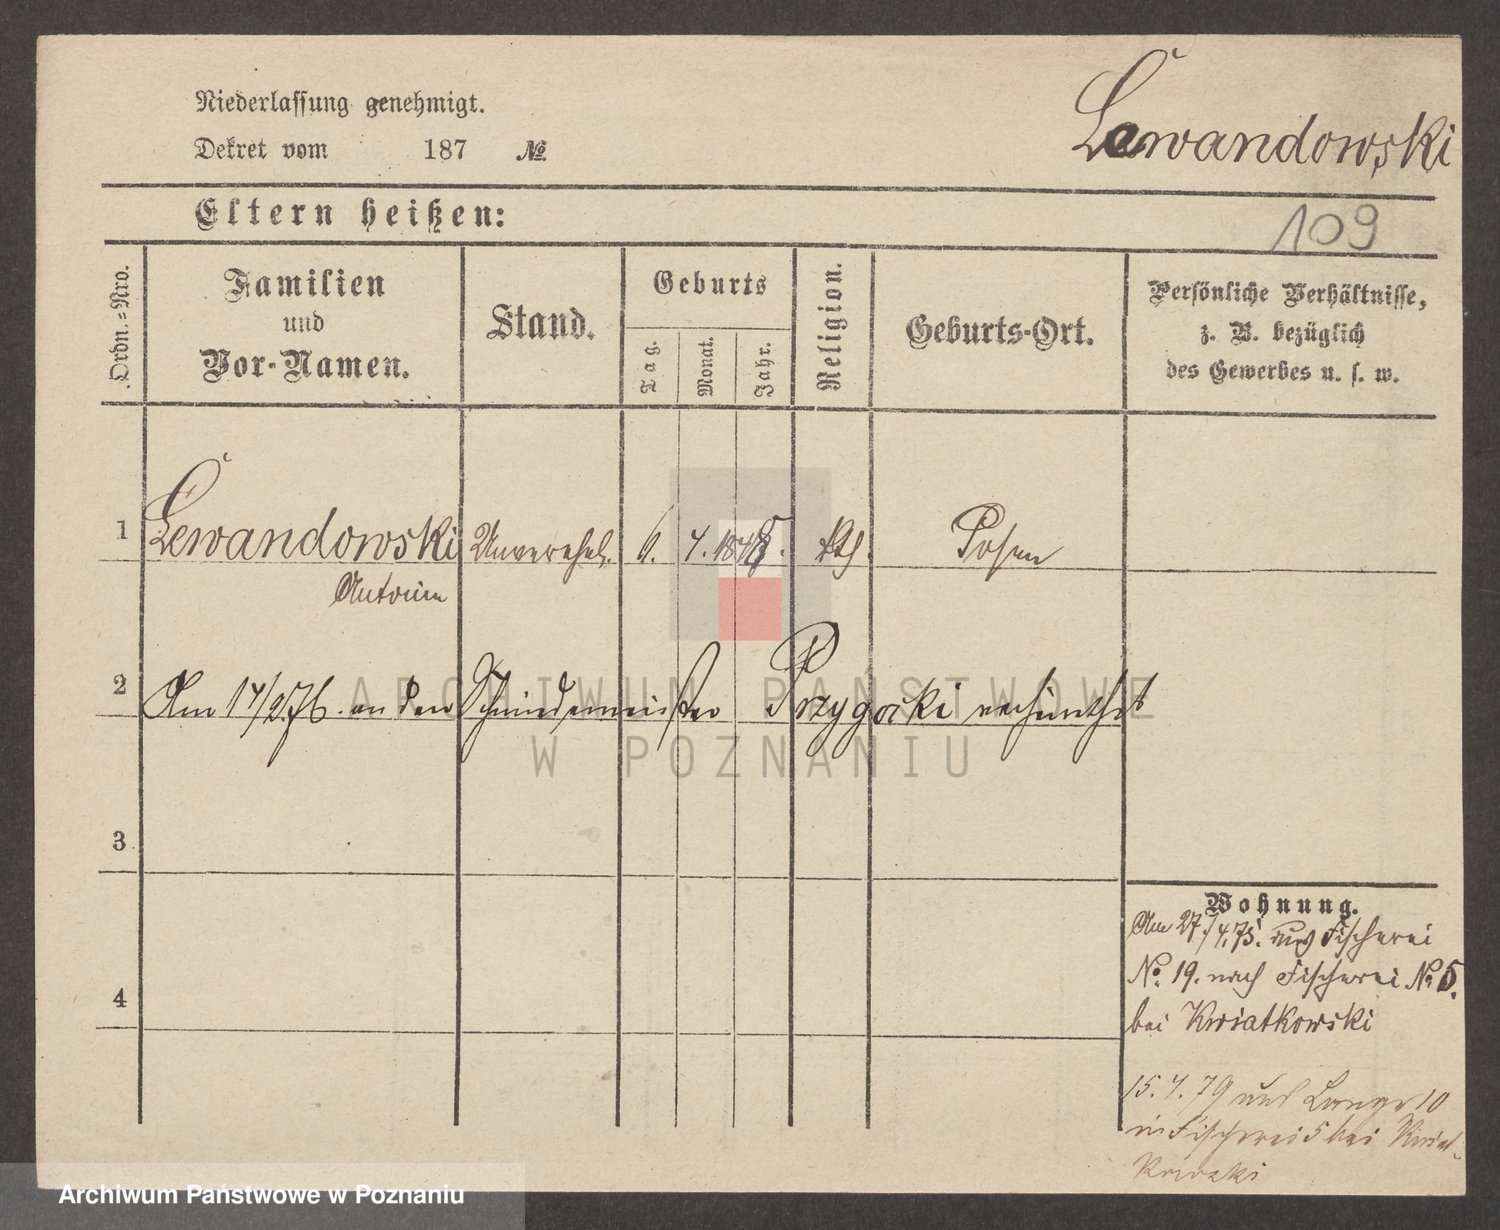 Lewandowski
Niederlassung genehmigt.
Dekret vom 187 №
Eltern heißen:
109
Ordn.=Nro.
Familien
und
Vor-Namen.
Stand.
Geburts
Tag.
Monat.
Jahr.
Religion.
Geburts-Ort.
Persönliche Verhältnisse,
z. B. bezüglich
des Gewerbes u. s. w.
1 Lewandowski Unverehel. 6. 4. 1848. kth. Posen
Antonie
2 Am 17/2.76. an den Schmiedemeister Przygocki
3
4
Wohnung.
Am 27./4.75. aus Fischerei
No. 19. nach Fischerei No 5.
bei Kwiatkowski
15. 4. 79 Lange 10
in Fischerei 5 bei Kwiat-
kowski
ARCHIWUM PAŃSTWOWE
W POZNANIU
Archiwum Państwowe w Poznaniu